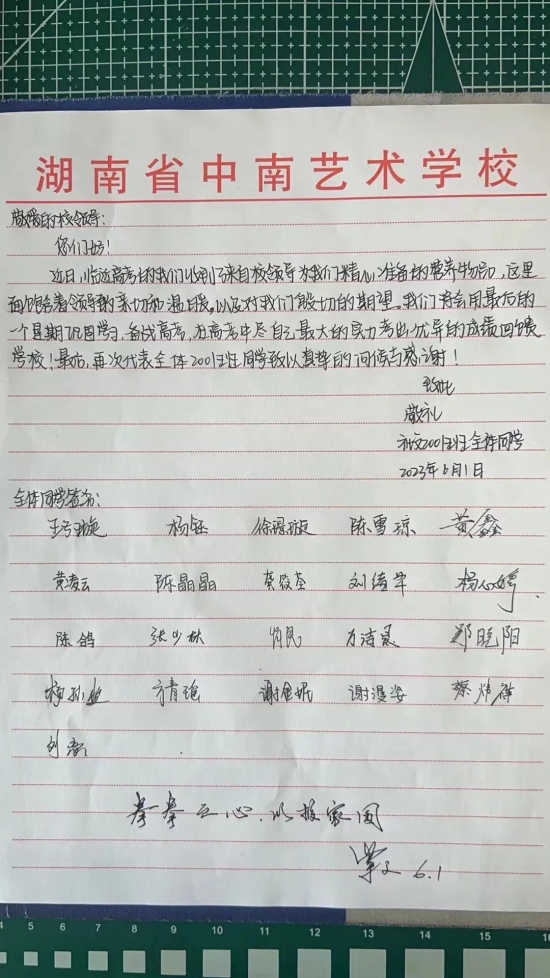 湖南省中南艺术学校
敬爱的校领导:
您们好!
近日,临近高考的我们收到了来自校领导为我们精心准备的营养物品,这里
面饱含着领导的亲切和温暖,以及对我们殷切的期望。我们将会用最后的
一个星期巩固学习,备战高考,在高考中尽自己最大的实力考出优异的成绩回馈
学校!最后,再次代表全体2001班同学致以真挚的问候与感谢!
致此
敬礼
2001班全体同学
2023年6月1日
全体同学签名:
杨钰 陈雪琼 黄鑫
黄凌云 陈晶晶 刘倩华 杨心婷
陈鸽 张少林 郑晓阳
谢漫姿 蔡炜祥
拳拳之心,以报家国
6.1
4 5 6 7 8 9 10 11 12 13 14 15 16